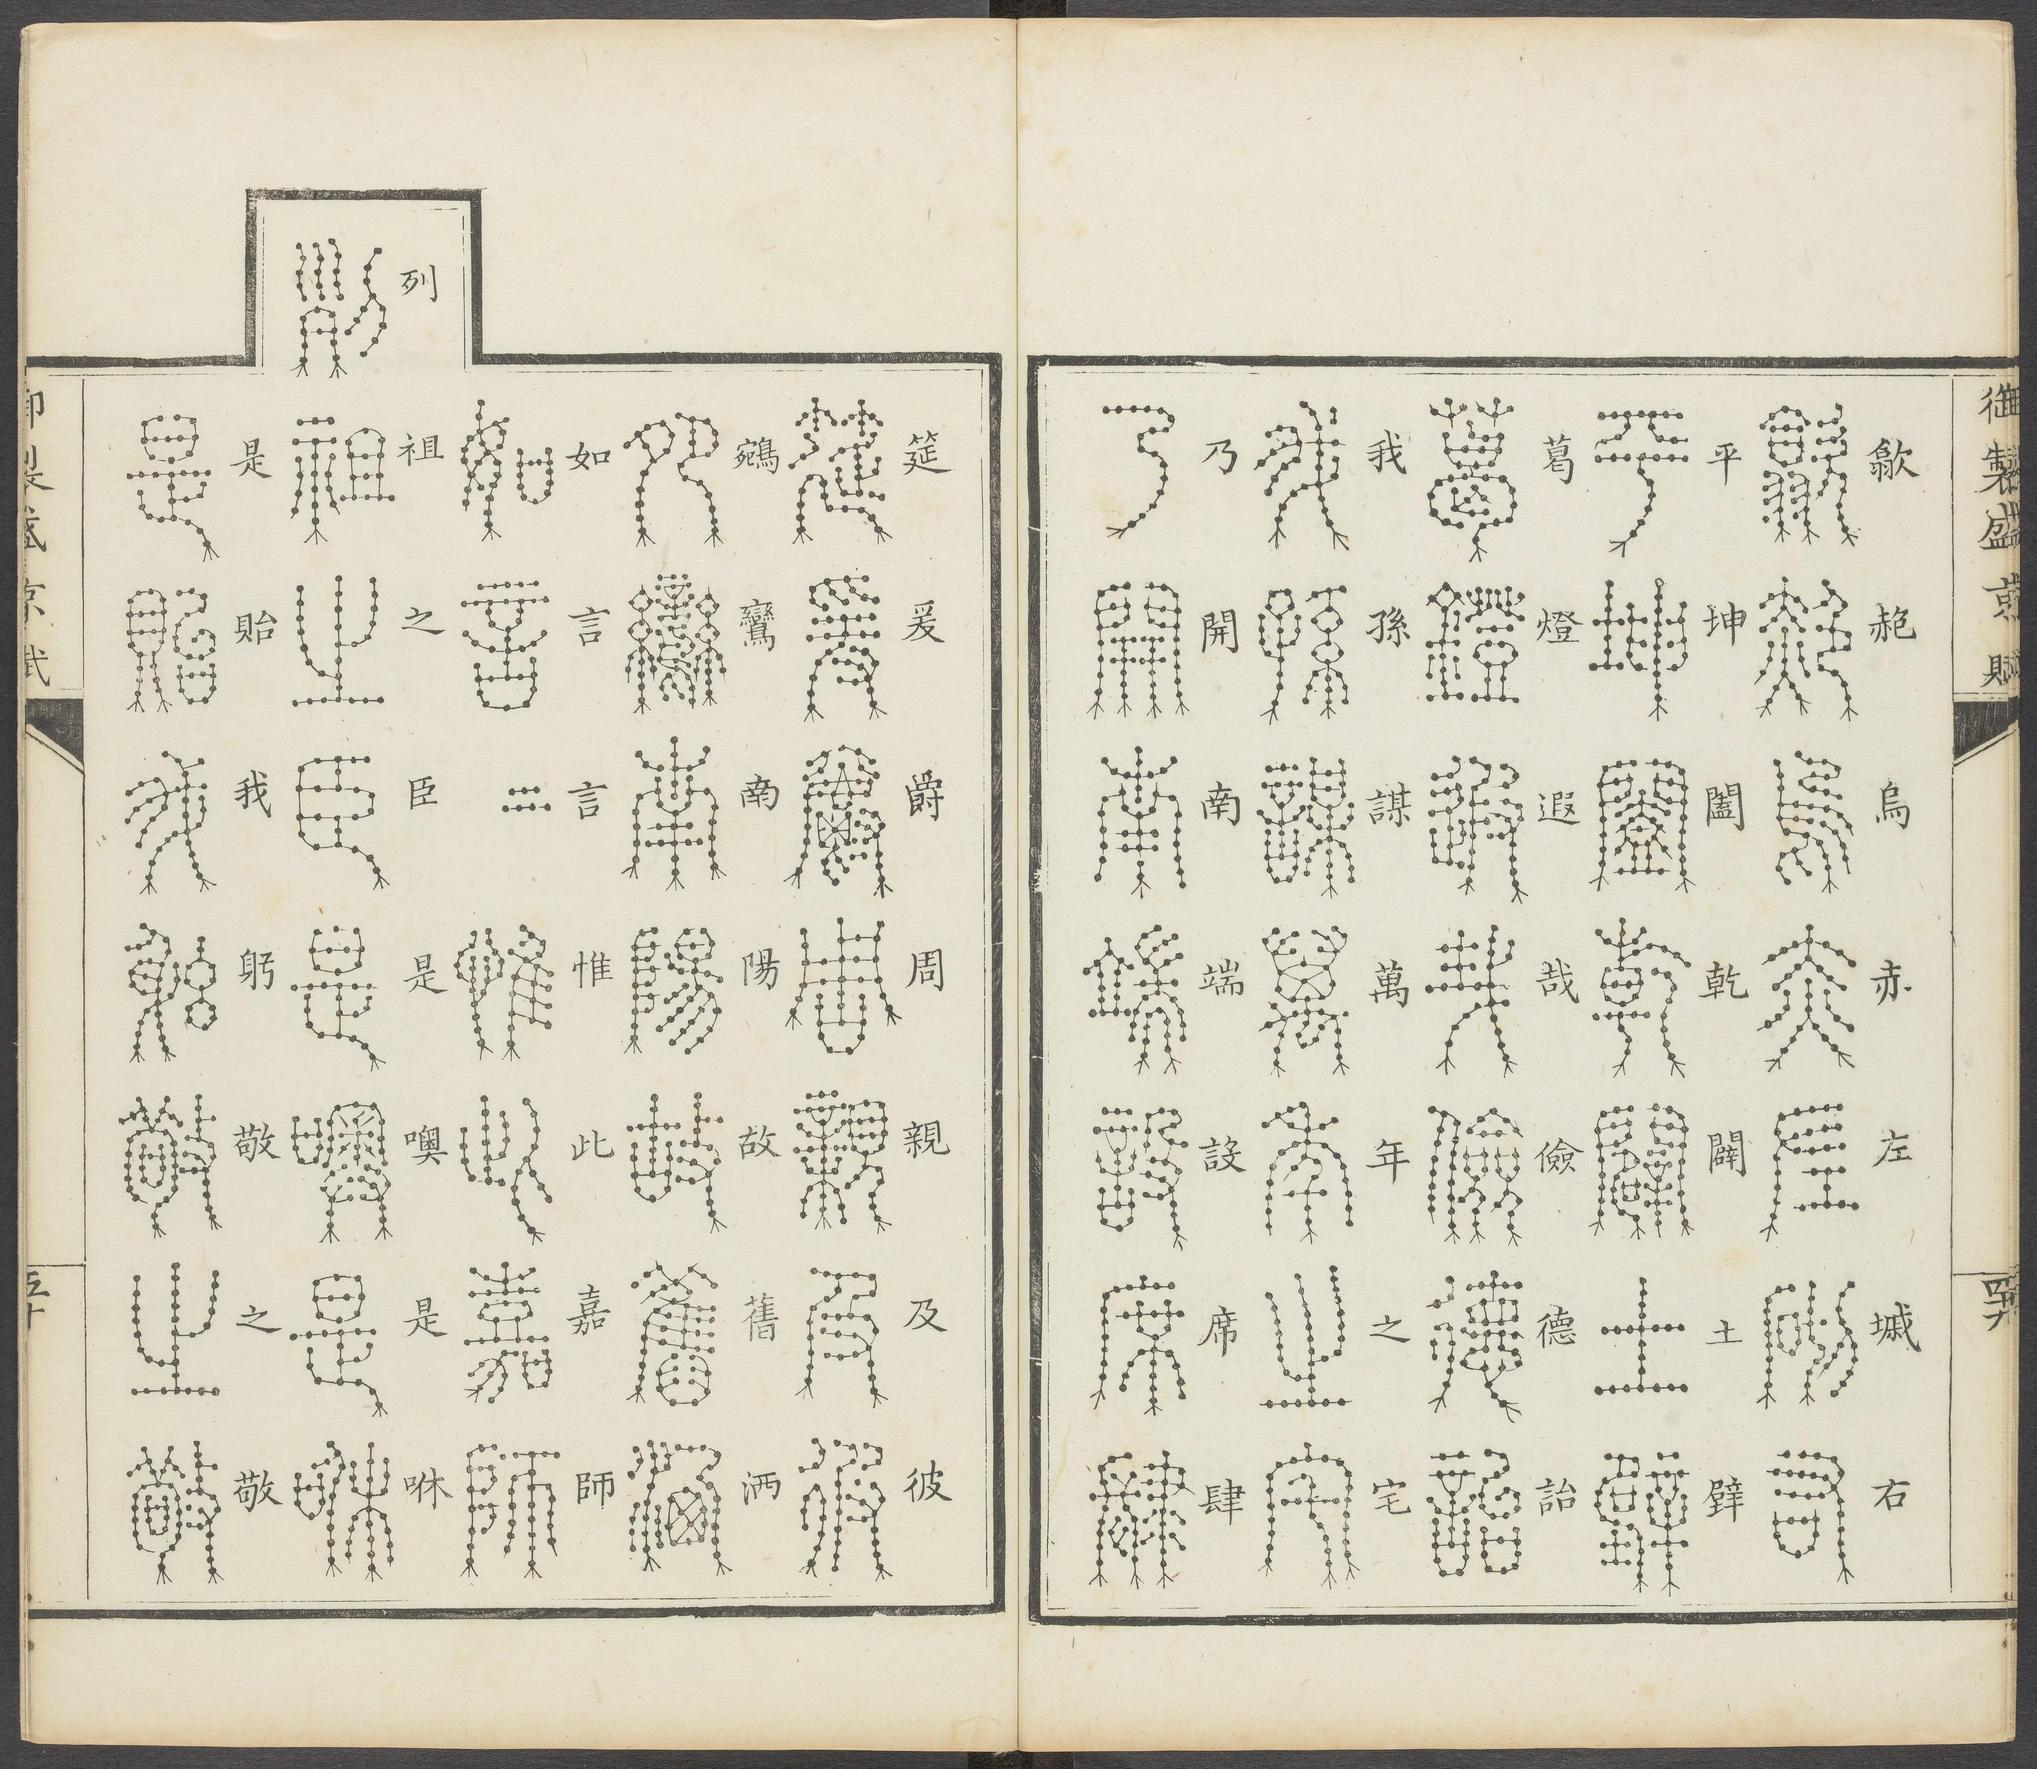 御製盛京賦
歙赩烏赤左墄右
平坤闔乾闢土壁
葛燈遐哉儉德詒
我孫謀萬年之宅
乃開南端設席肆
四十九
筵爰爵周親及彼
鵷鸞南陽故舊洒
如言言惟此嘉師
列祖之臣是噢是咻
是貽我躬敬之敬
五十